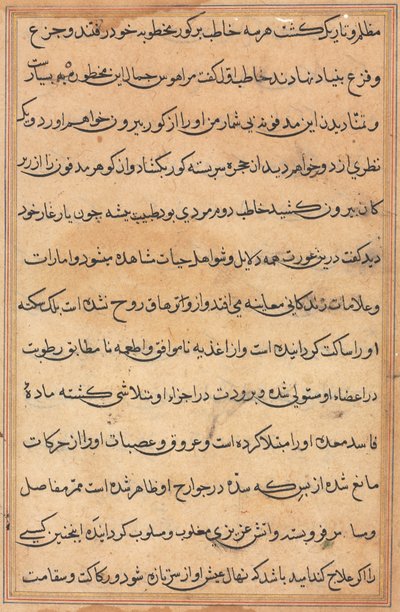 مظلم و تاریک گشت هر سه خاطب بر کور مخطوبه خود رفتند و جزع
و فزع بنیاد نهادند خاطب اول گفت مرا هوس جمال این مخطوره بسیارست
و تمنا دیدن این مدفونه بی شمار من او را از کور بیرون خواهم اورد و یک
نظری از دو خواهم دید ان حجره سر بسته کور بکشاد و ان کوهر مدفون را از زیر
کان بیرون کشید خاطب دوم مردی بود طبیب پیشه چون یار غار خود
دید گفت درین عورت همه دلایل و شواهد حیات مشاهده میشود و امارات
و علامات زندکانی معاینه می افتد و از و انزهاق روح نشده است بلک سکته
او را ساکت کردانیده است و از اغذیه ناموافق و اطعمه نامطابق رطوبت
در اعضاء او مستولی شده و برودت در اجزاء او متلاشی کشته مادهٔ
فاسد معده او را مبتلا کرده است و عروق و عصبات او را از حرکات
مانع شده از بس که سده در جوارح او ظاهر شده است ممر مفاصل
و مسامر فرو بسته و اتش غریزی مغلوب و مسلوب کردانیده اینچنین کسی
را اکر علاج کنند امید باشد که نهال عیش او از سر تازه شود و رکاکت و سقامت